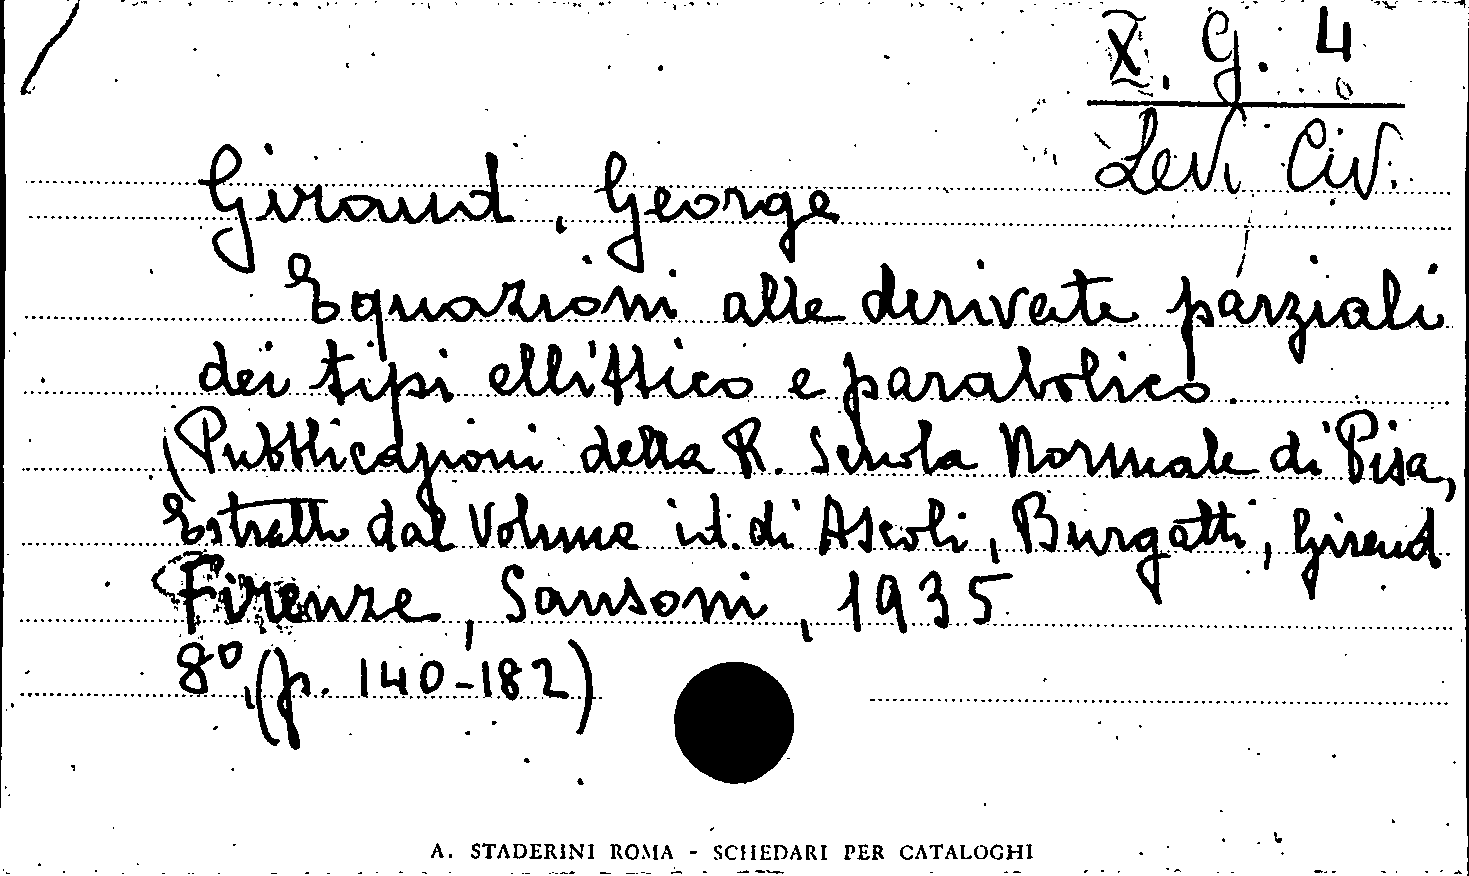 X. G. 4
Levi Civ.
Giraud, George
Equazioni alle derivate parziali
dei tipi ellittico e parabolico.
(Pubblicazioni della R. Scuola Normale di Pisa,
Estratto dal Volume id. di Ascoli, Burgatti, Giraud
Firenze, Sansoni, 1935
8°, (p. 140-182)
A. STADERINI ROMA - SCHEDARI PER CATALOGHI